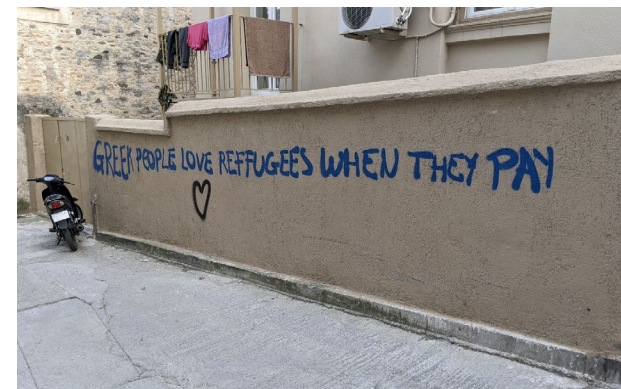 GREEK PEOPLE LOVE REFFUGEES WHEN THEY PAY